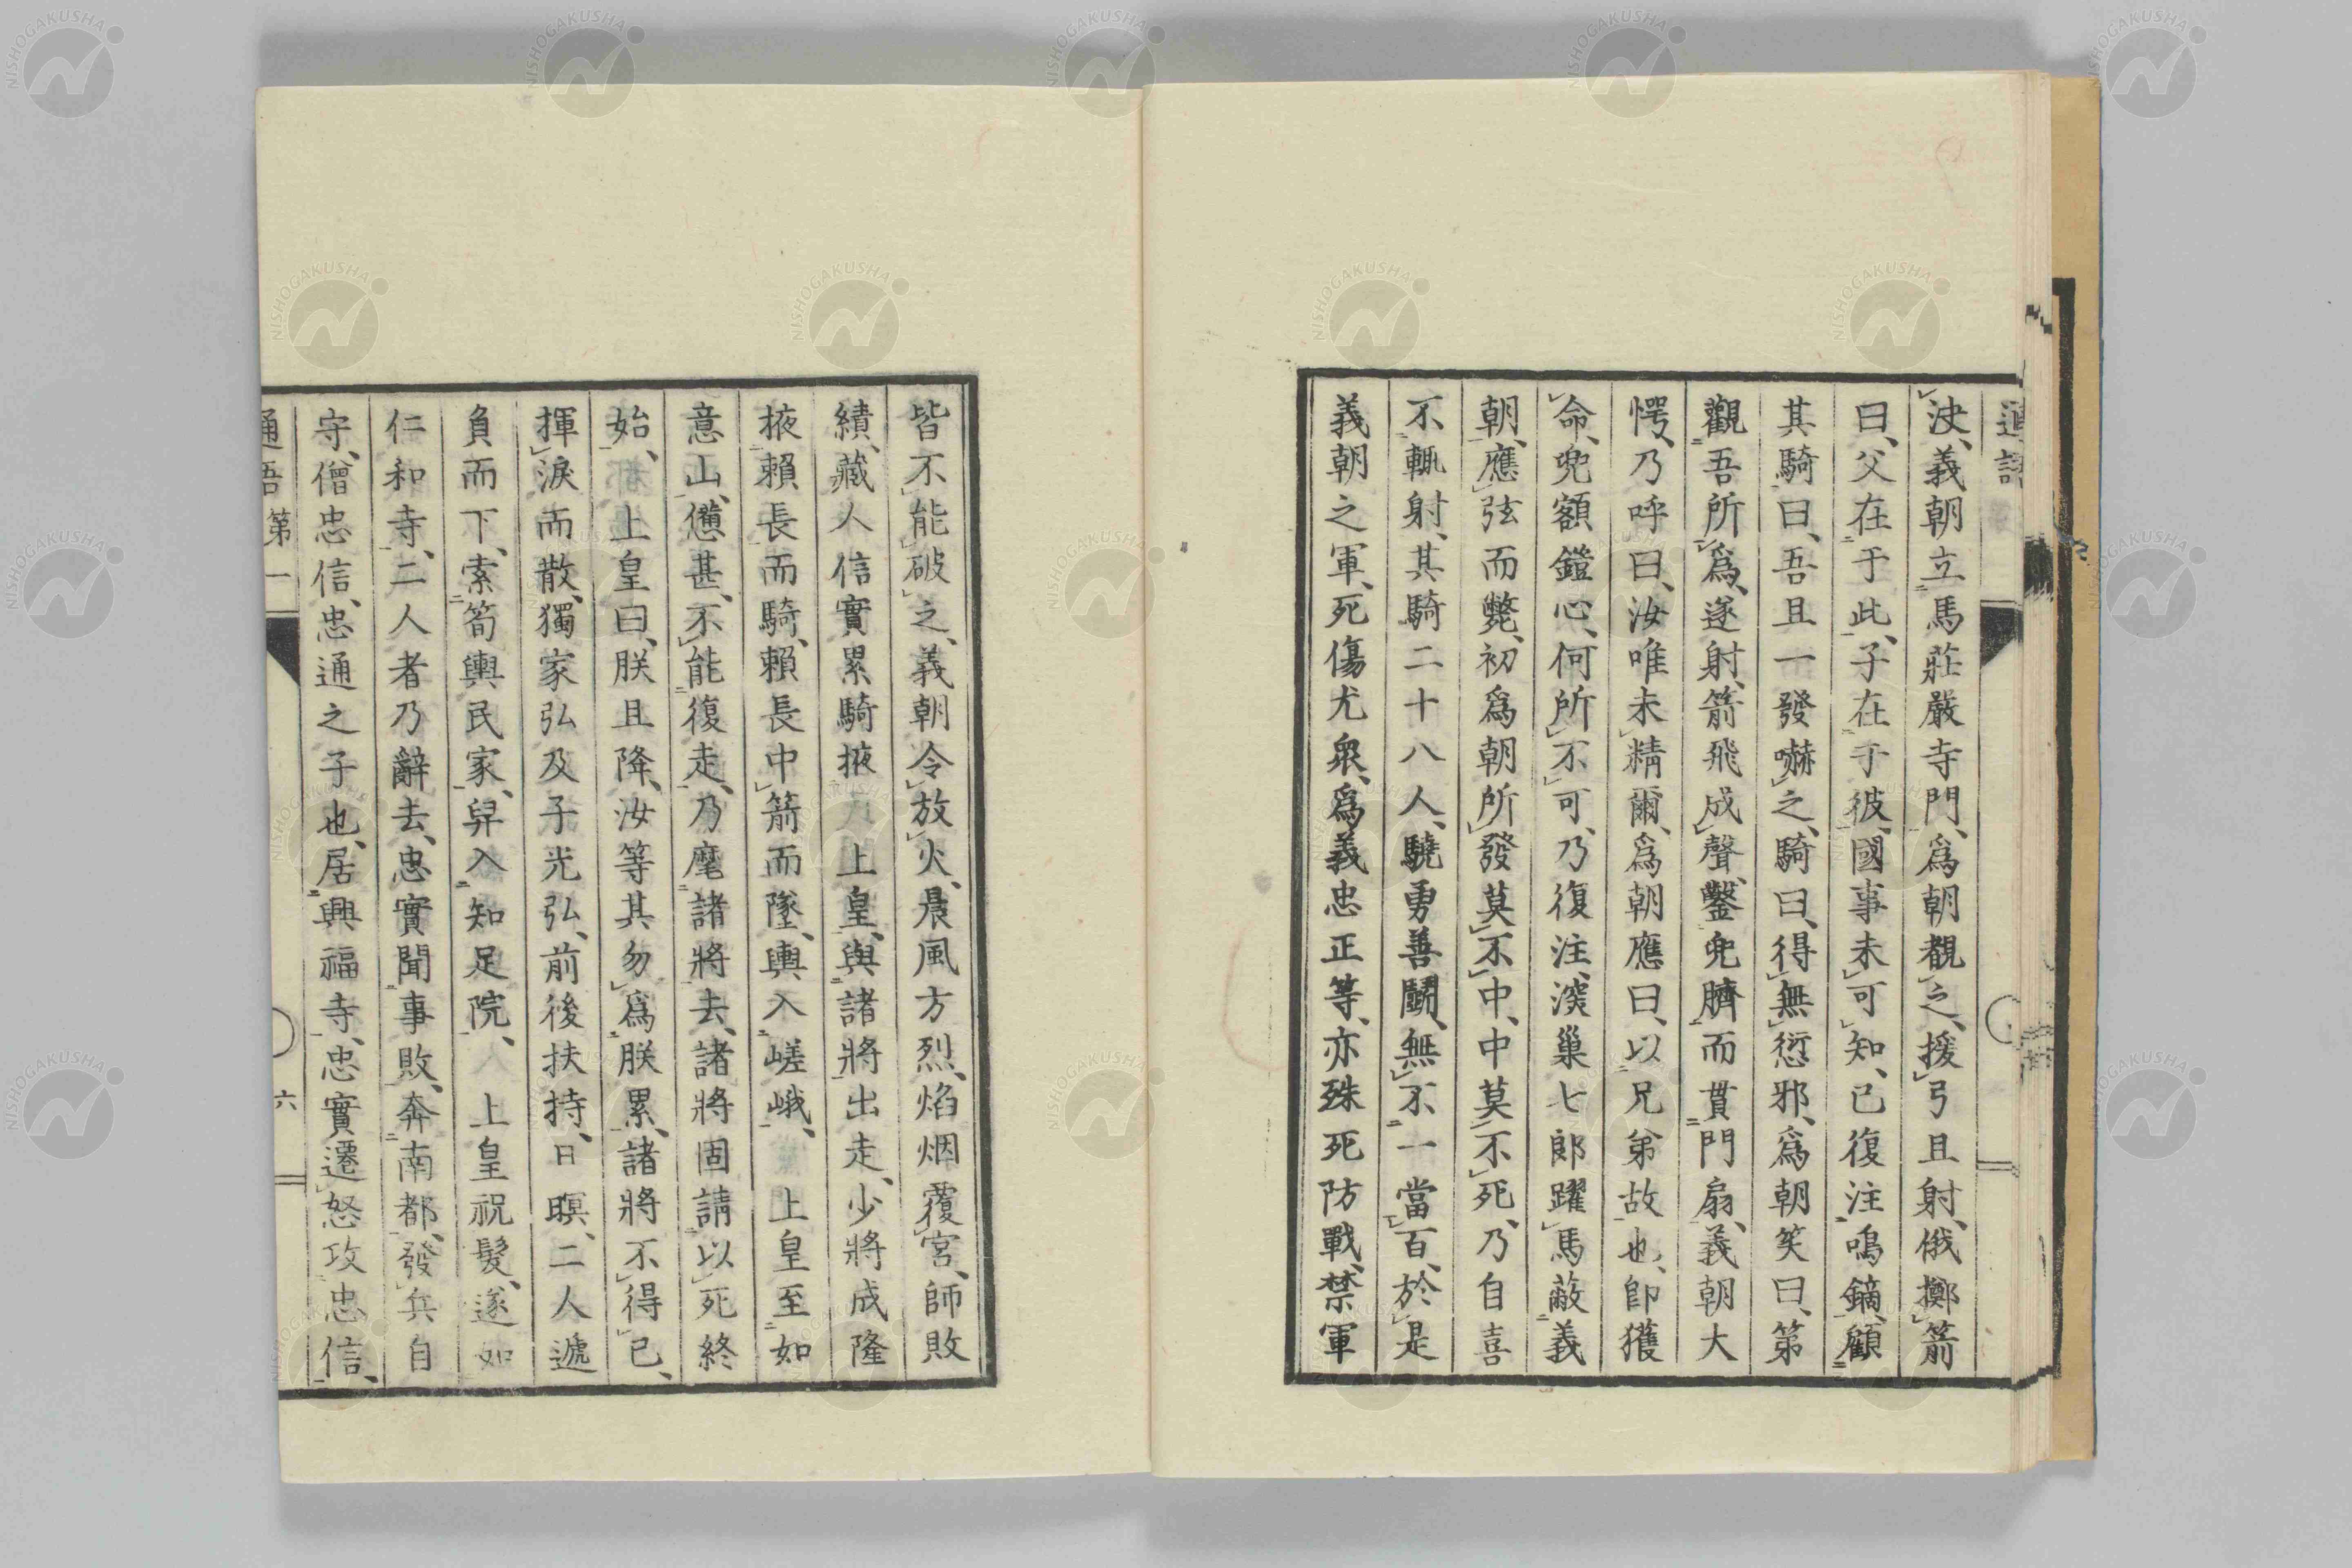 決、義朝立馬莊嚴寺門、爲朝覩之、援弓且射、俄擲箭
曰、父在于此、子在于彼、國事未可知、已復注鳴鏑、顧
其騎曰、吾且一發嚇之、騎曰、得無愆邪、爲朝笑曰、第
觀吾所爲、遂射、箭飛成聲、鑿兜臍而貫門扇、義朝大
愕、乃呼曰、汝唯未精爾、爲朝應曰、以兄弟故也、卽獲
命、兜額鎧心、何所不可、乃復注、深巢七郎躍馬蔽義
朝、應弦而斃、初爲朝所發莫不中、中莫不死、乃自喜
不輒射、其騎二十八人、驍勇善鬭、無不一當百、於是
義朝之軍、死傷尤衆、爲義忠正等、亦殊死防戰、禁軍
皆不能破之、義朝令放火、晨風方烈、焰烟覆宮、師敗
績、藏人信實累騎掖上皇、與諸將出走、少將成隆
掖賴長而騎、賴長中箭而墜、輿入嵯峨、上皇至如
意山、憊甚、不能復走、乃麾諸將去、諸將固請以死終
始、上皇曰、朕且降、汝等其勿爲朕累、諸將不得已、
揮淚而散、獨家弘及子光弘、前後扶持、日暝、二人遞
負而下、索筍輿民家、舁入知足院、上皇祝髮、遂如
仁和寺、二人者乃辭去、忠實聞事敗、奔南都、發兵自
守、僧忠信、忠通之子也、居興福寺、忠實遷怒攻忠信、
通語第一
六
NISHOGAKUSHA